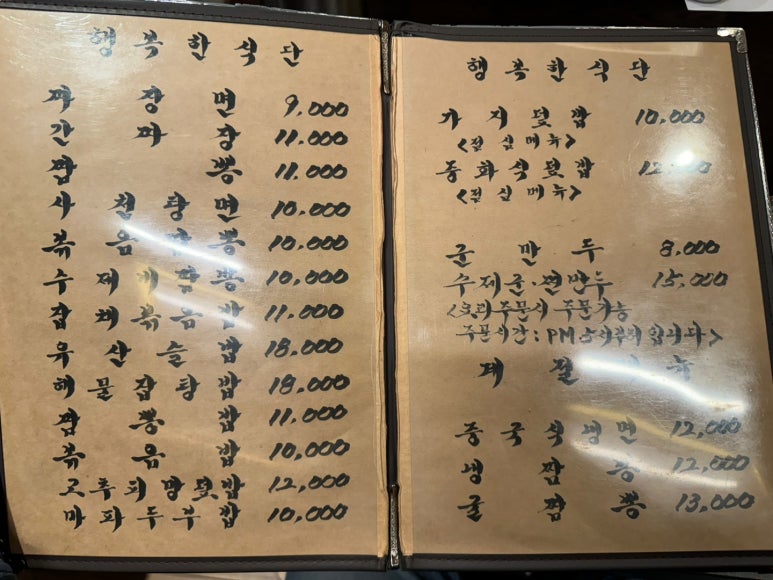 행복한식단
짜장면 9,000
간짜장 11,000
짬뽕 11,000
사철탕면 10,000
볶음짬뽕 10,000
수제비짬뽕 10,000
잡채볶음밥 11,000
유산슬밥 18,000
해물잡탕밥 18,000
짬뽕밥 11,000
볶음밥 10,000
고추피망덮밥 12,000
마파두부밥 10,000
행복한식단
가지덮밥 10,000
<점심메뉴>
중화식덮밥
<점심메뉴>
군만두 8,000
수제군·찐만두 15,000
<요리주문시 주문가능
주문시간: PM 5시부터 입니다>
계절
중국식냉면 12,000
냉짬뽕 12,000
굴짬뽕 13,000